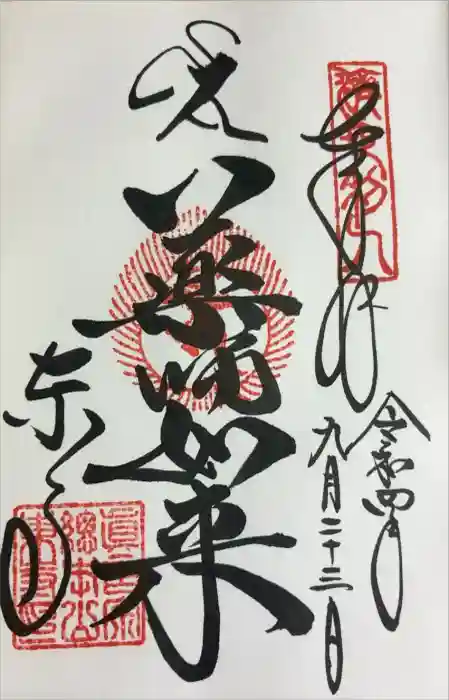 奉拝
令和四年
九月二十三日
薬師如来
東寺
眞言宗
總本山
東寺印